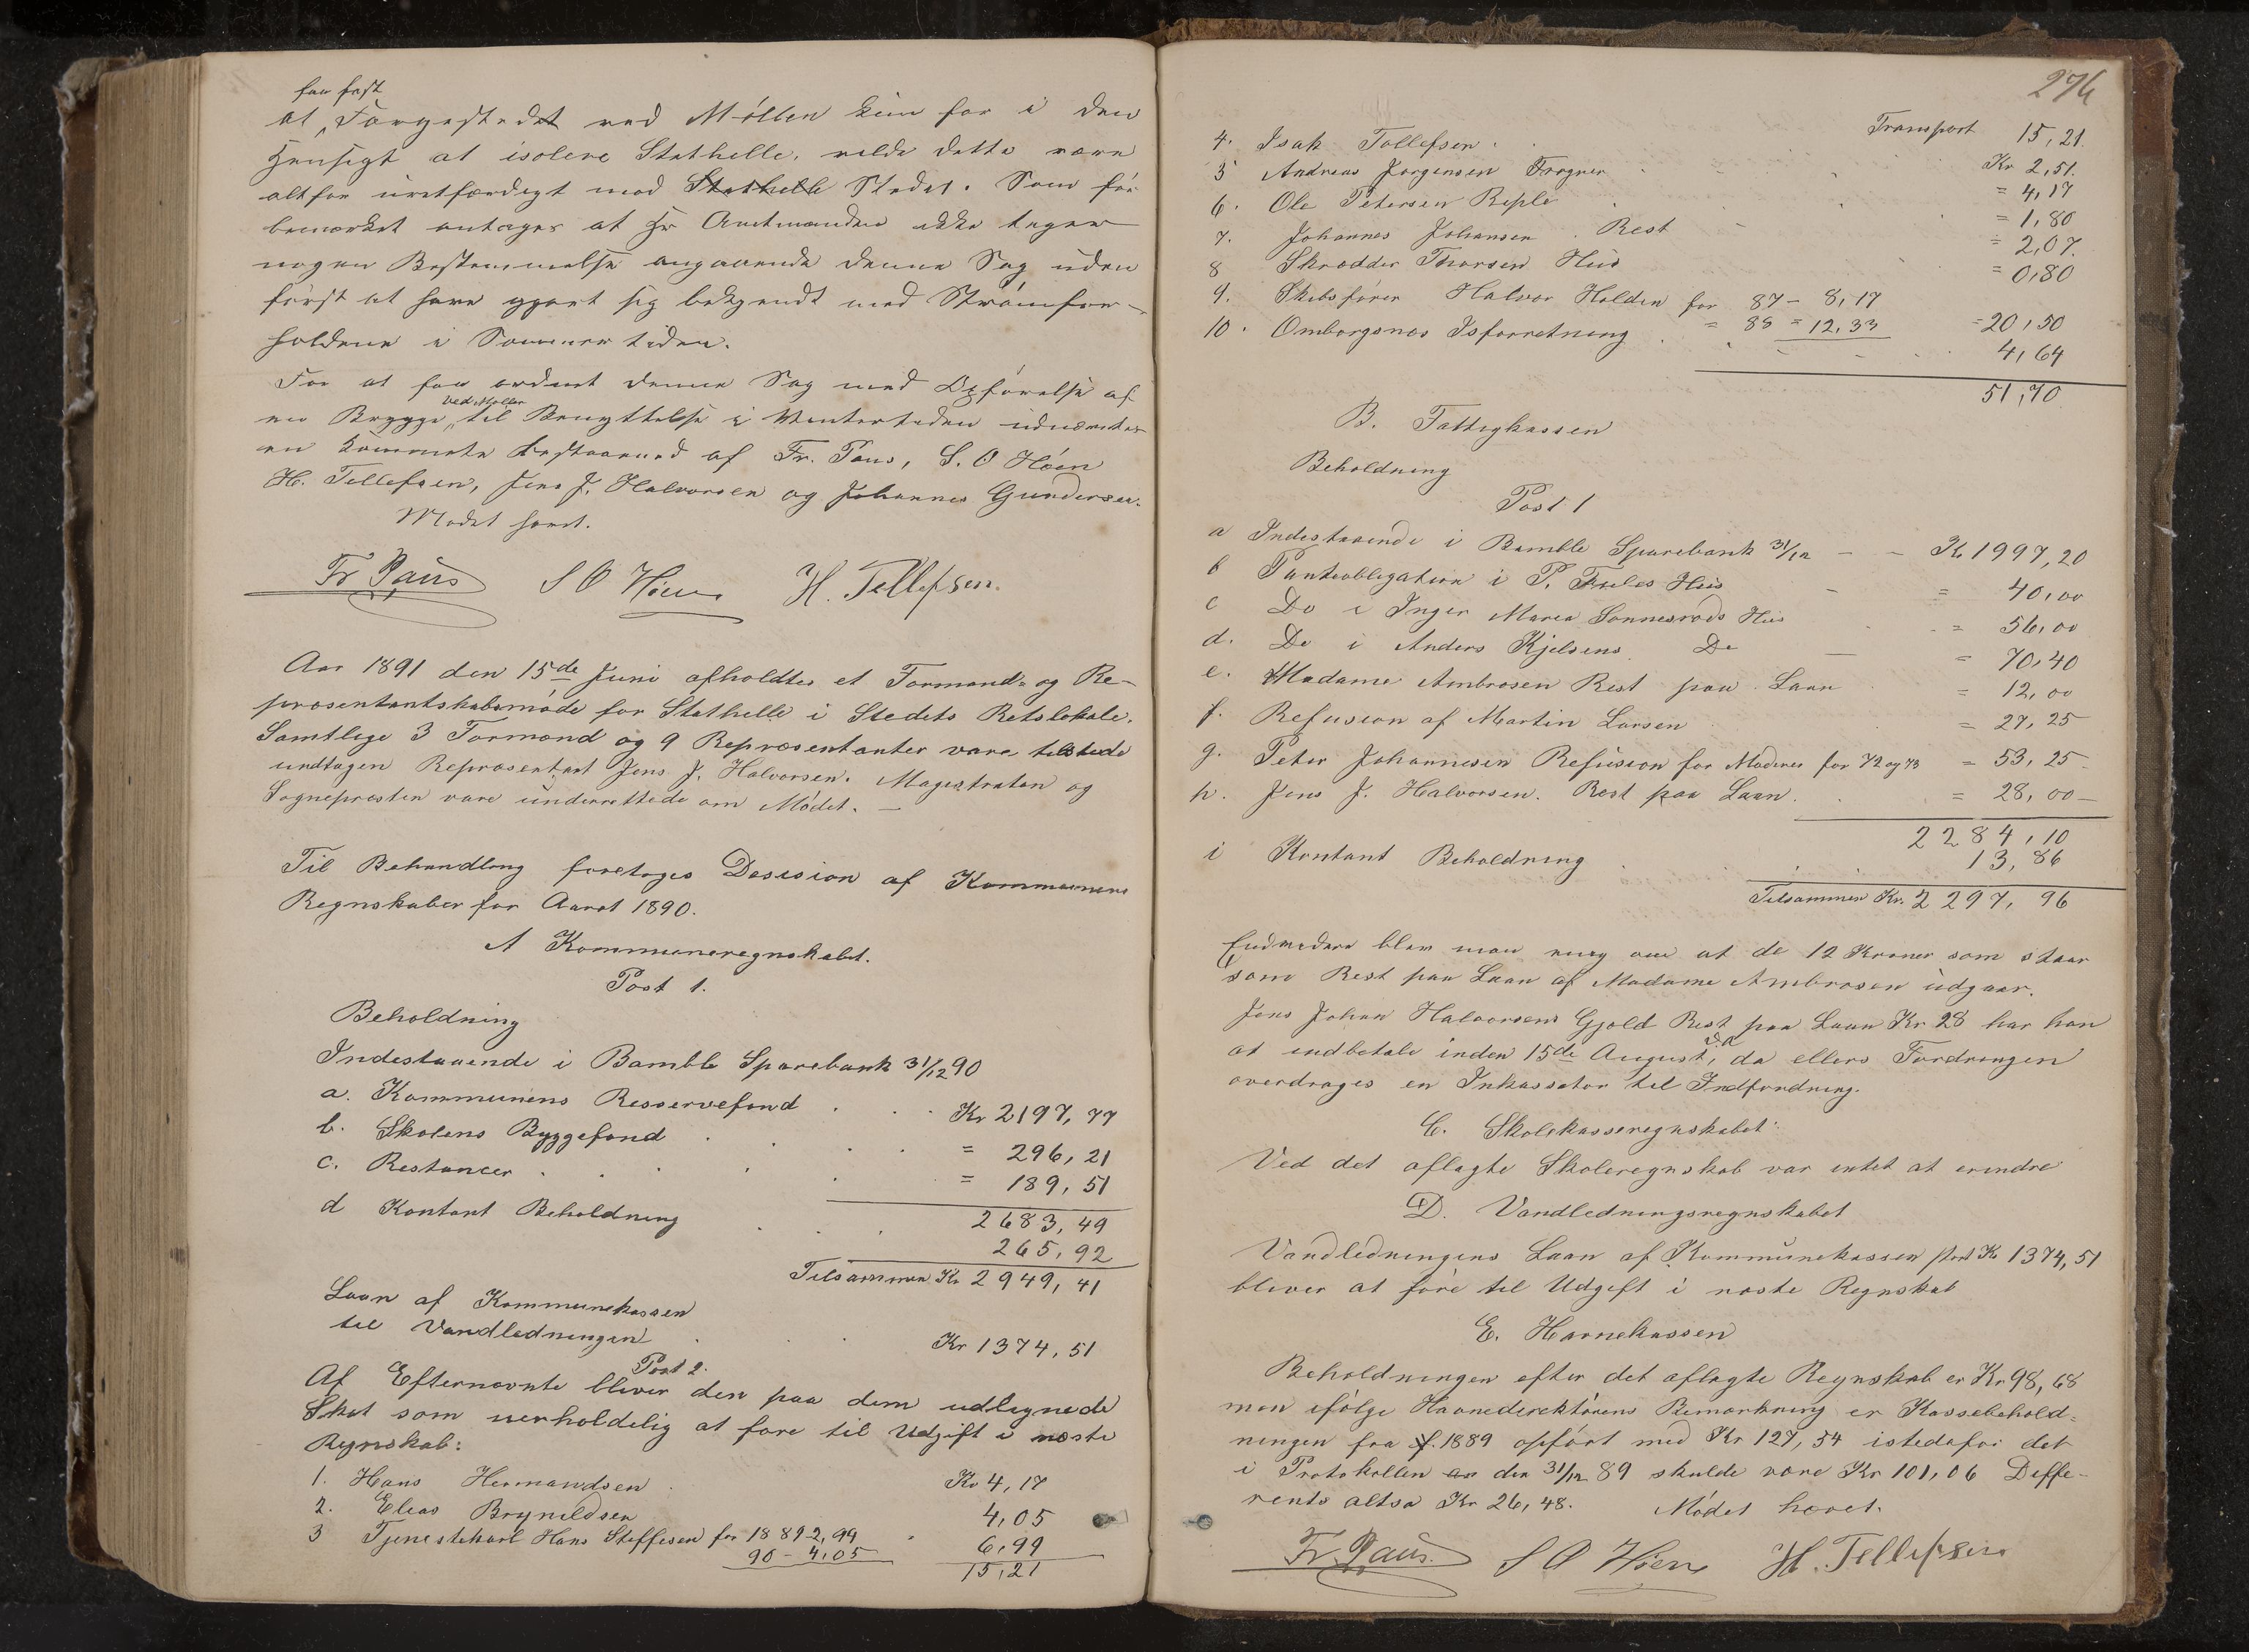 faa fast
at Færgestedet ved Møllen kun for i den
Hensigt at isolere Stathelle, vilde dette være
altfor uretfærdigt mod Stathelle Stedet. Som før
bemærket antages at Hr Amtmanden ikke tager
nogen Bestemmelse angaaende denne Sag uden
først at have gjort sig bekjendt med Strømfor-
holdene i Sommertiden.
For at faa ordnet denne Sag med Opførelse af
ved Møllen
en Brygge til Benyttelse i Vintertiden udnævntes
en Kommite bestaaende af Fr. Paus, S. O Høen
H. Tellefsen, Jens J. Halvorsen og Johannes Gundersen.
Mødet hævet.
Fr Paus S O Høen H. Tellefsen.
Aar 1891 den 15de Juni afholdtes et Formand- og Re-
præsentantskabsmøde for Stathelle i Stedets Retslokale.
Samtlige 3 Formænd og 9 Repræsentanter vare tilstede
undtagen Repræsentant Jens J. Halvorsen. Magistraten og
Sognepresten vare underrettede om Mødet. —
Til Behandling foretoges Desision af Kommunens
Regnskaber for Aaret 1890.
A Kommuneregnskabet.
Post 1.
Beholdning
Indestaaende i Bamble Sparebank 31/12 90
a. Kommunens Resservefond . . . Kr 2197,77
b. Skolens Byggefond . . . = 296,21
c. Restancer . . . = 189,51
2683,49
d Kontant Beholdning . . 265,92
Tilsammen Kr 2949,41
Laan af Kommunekassen
til Vandledningen . . . Kr 1374,51
Post 2.
Af Efternævnte bliver den paa dem udlignede
Skat som uerholdelig at føre til Udgift i næste
Regnskab:
1. Hans Hermandsen . Kr 4,17
2. Elias Brynildsen 4,05
3 Tjenestekarl Hans Steffesen for 1889 2,94
90 - 4,05 6,99
15,21
276
Transport 15,21.
4. Isak Tollefsen . . Kr 2,51.
5 Andreas Jørgensen Frogner . = 4,17
6. Ole Petersen Reple . = 1,80
7. Johannes Johansen . Rest = 2,07.
8 Skrædder Thorsen Hus = 0,80
9. Skibsfører Halvor Holden for 87 – 8,17
= 88 = 12,33 = 20,50
10. Omborgsnæs Isforretning . 4,64
51,70
B. Fattigkassen
Beholdning
Post 1
a Indestaaende i Bamble Sparebank 31/12 — — Kr 1997,20
b Panteobligation i P. Hus – = 40,00
c Do i Inger Maria Sannesrøds Hus = 56,00
d. Do i Anders Kjelsens Do — = 70,40
e. Madame Ambrosen Rest paa Laan = 12,00
f. Refusion af Martin Larsen = 27,25
g. Peter Johannesen Refusion for Moderen for 72 og 73 = 53,25
h. Jens J. Halvorsen. Rest paa Laan. = 28,00 –
2284,10
i Kontant Beholdning . . . 13,86
Tilsammen Kr. 2297,96
Endvidere blev man enig om at de 12 Kroner som staar
som Rest paa Laan af Madame Ambrosen udgaar.
Jens Johan Halvorsens Gjæld Rest paa Laan Kr 28 har han
at indbetale inden 15de August d.A, da ellers Fordringen
overdrages en Inkassator til Indfordring.
C. Skolekasseregnskabet.
Ved det aflagte Skoleregnskab var intet at erindre
D. Vandledningsregnskabet
Vandledningens Laan af Kommunekassen stort Kr 1374,51
bliver at føre til Udgift i næste Regnskab
E. Havnekassen
Beholdningen efter det aflagte Regnskab er Kr 98,68
men ifølge Havnedirektørens Bemærkning er Kassebehold-
ningen fra f. 1889 opført med Kr 127,54 istedetfor det
i Protokollen den 31/12 89 skulde være Kr 101,06 Diffe-
rents altsa Kr 26,48. Mødet hævet.
Fr. Paus. S O Høen H. Tellefsen